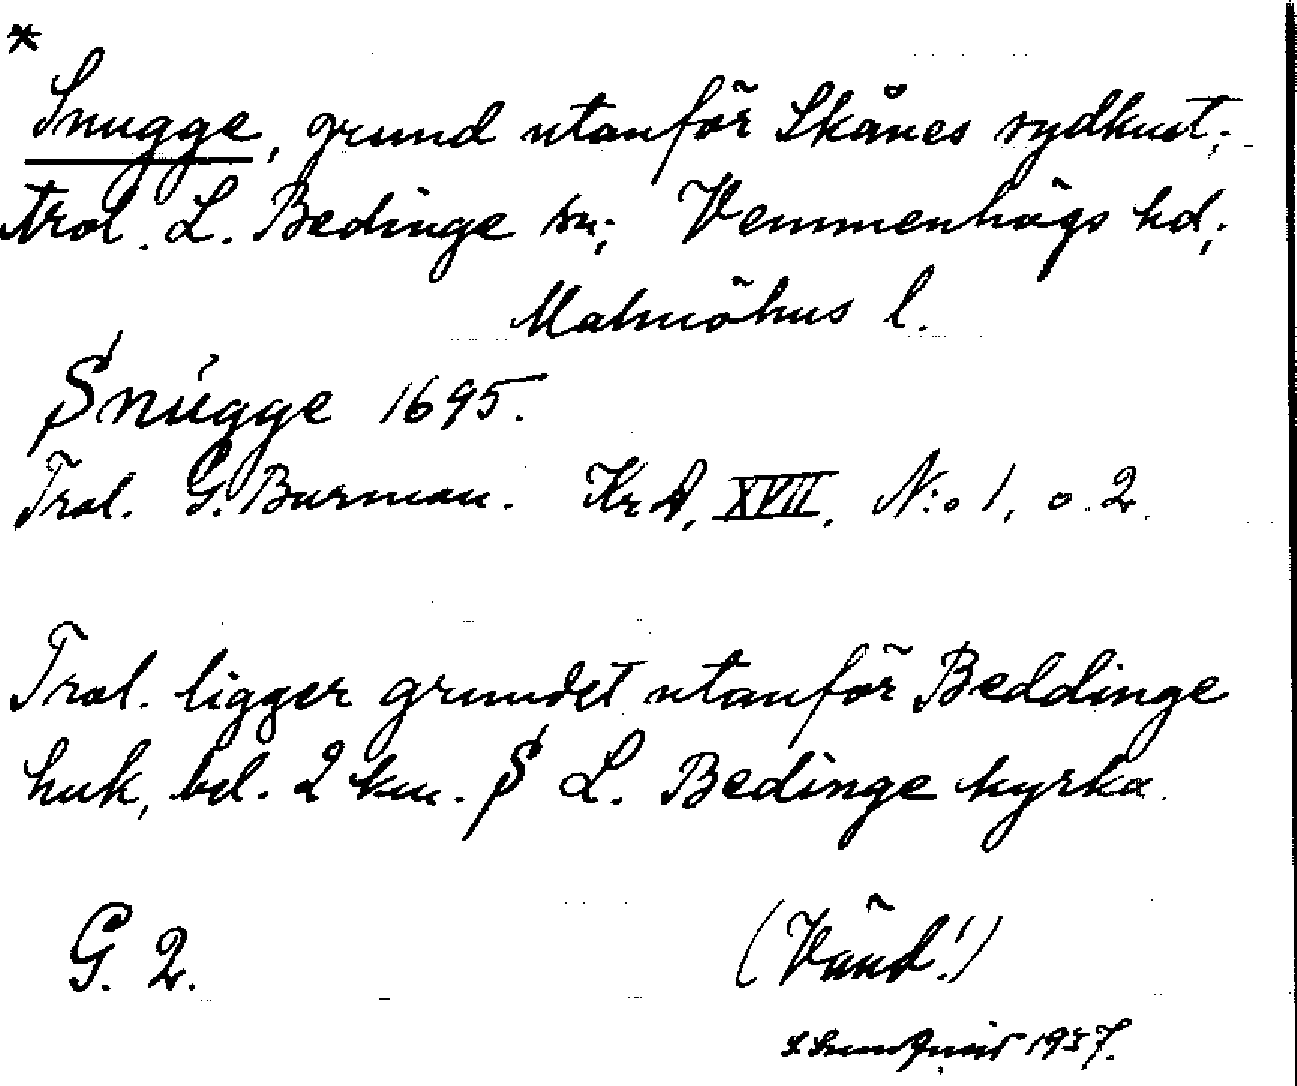 *
Snugge, grund utanför Skånes sydkust;
trol. L. Bedinge sn; Vemmenhögs hd;
Malmöhus l.
Snúgge 1695.
Trol. G. Burman. KrA, XVII, N:o 1, o. 2.
Trol. ligger grundet utanför Beddinge
huk, bel. 2 km. S L. Bedinge kyrka.
G. 2.
(Vänd!)
1937.